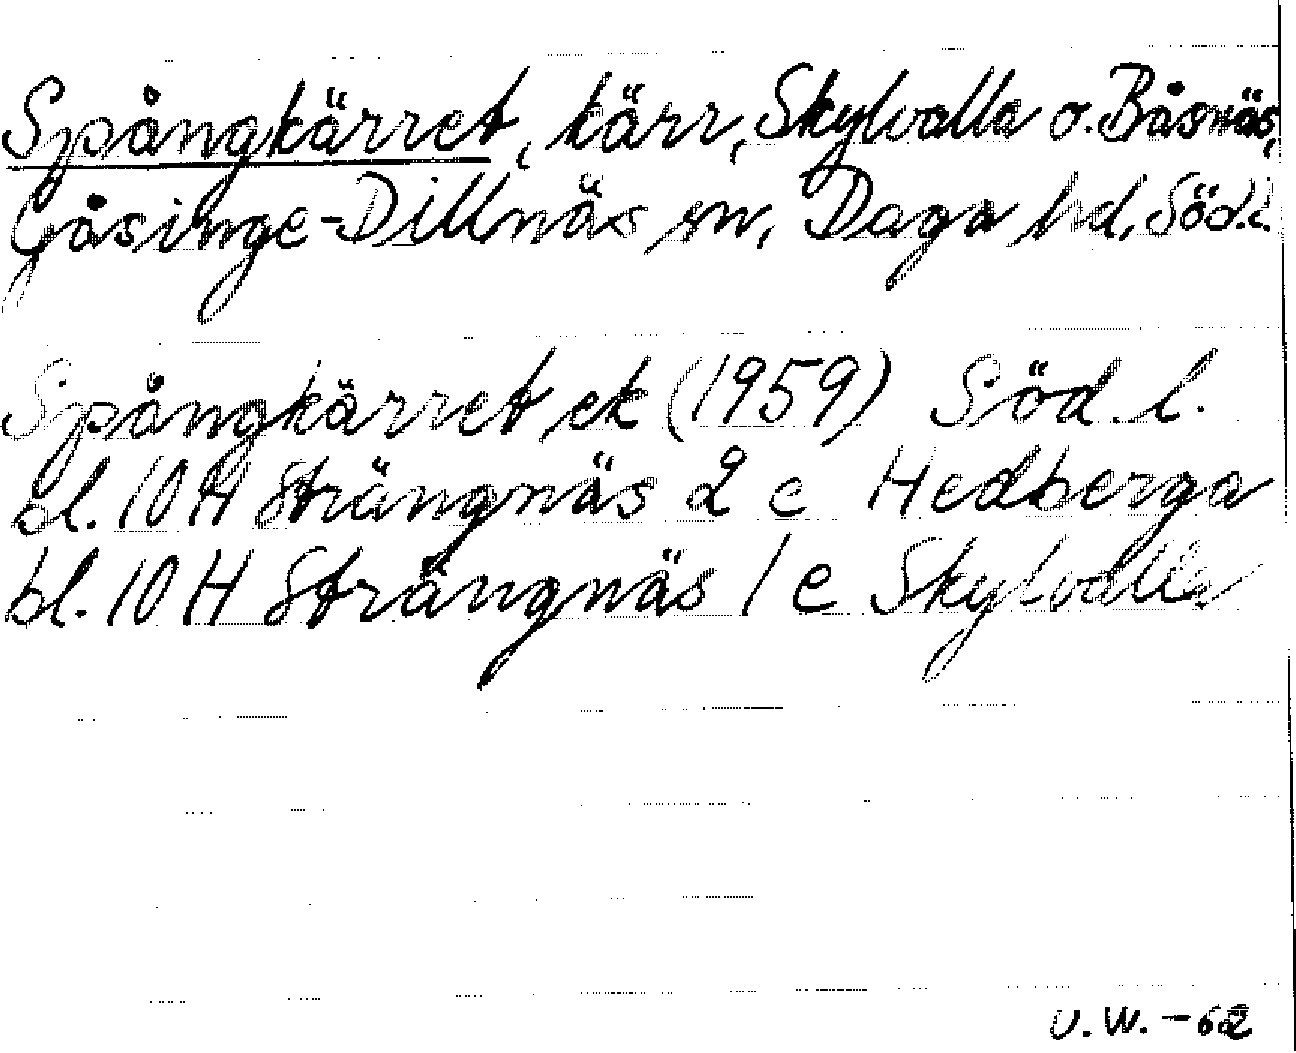 Spångkärret, kärr, Skylvalla o. Båsnäs,
Gåsinge-Dillnäs sn, Daga hd, Söd.l.
Spångkärret ek (1959) Söd. l.
bl. 10 H Strängnäs 2 c Hedberga
bl. 10 H Strängnäs 1 c Skylvalla
U.W. - 62